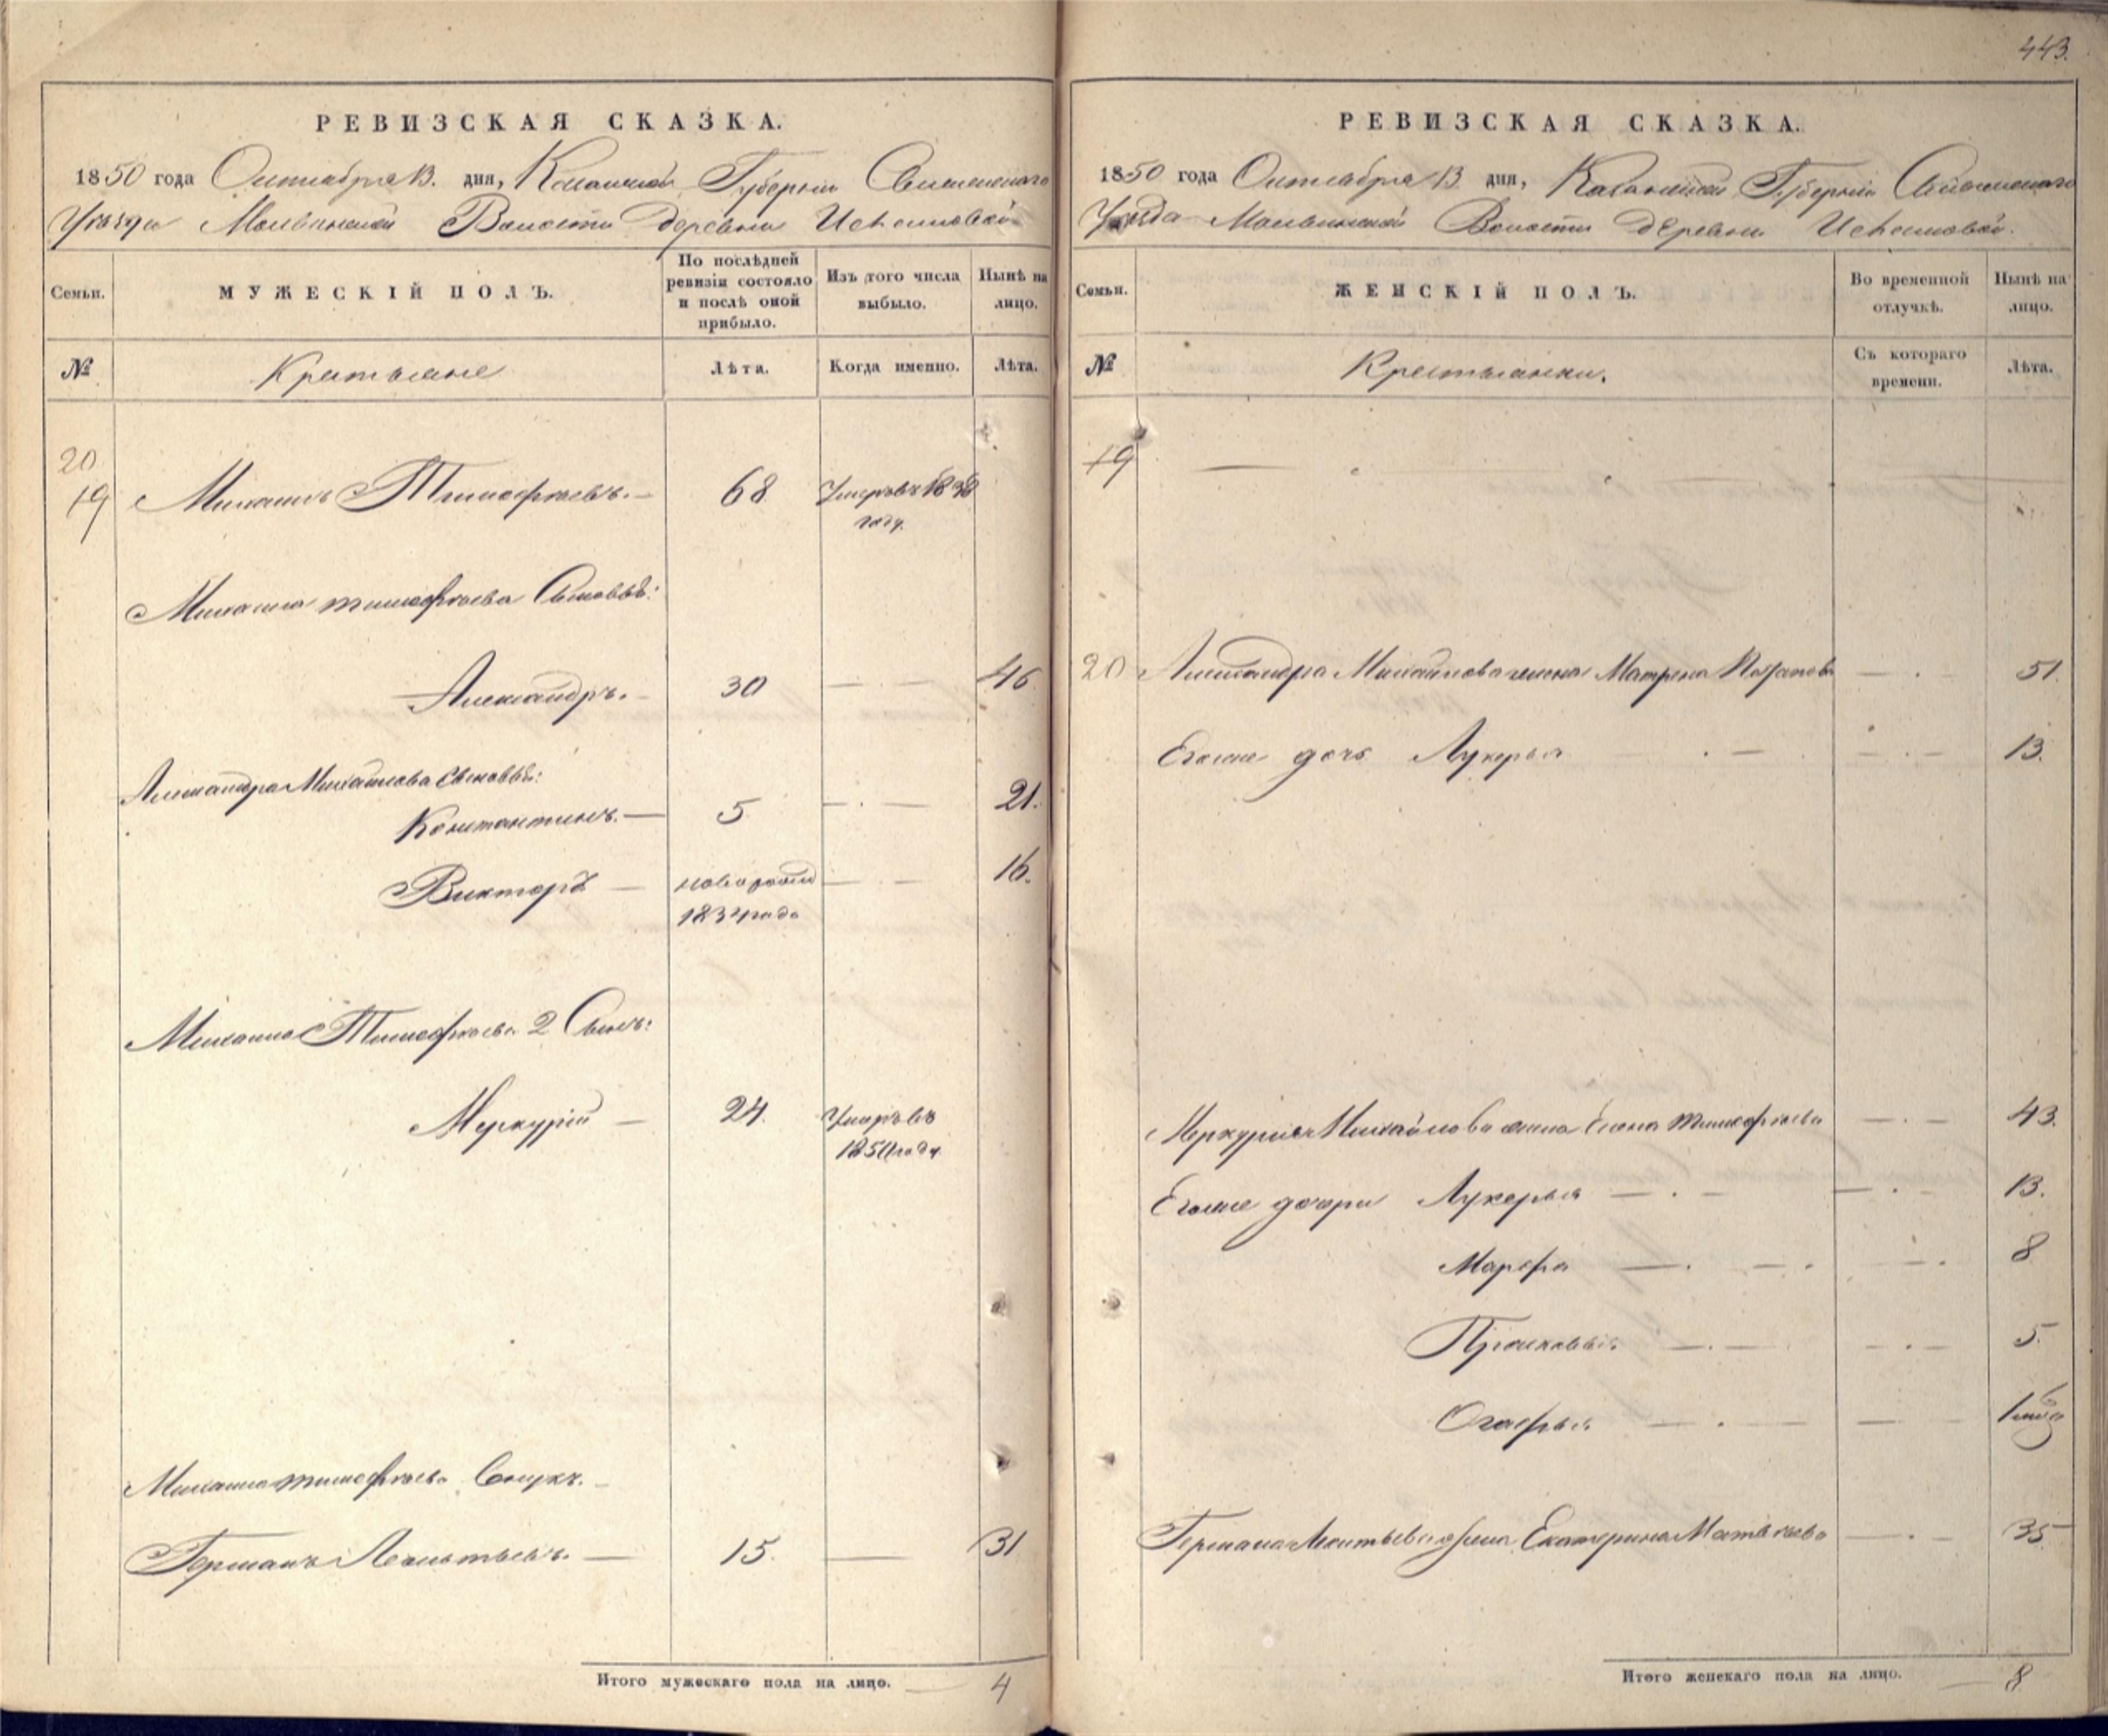 443.
РЕВИЗСКАЯ СКАЗКА.
1850 года Октября 13. дня, Казанской Губернии Свіяжскаго
Уѣзда Молвинской Волости деревни Исаковой
Семьи.
МУЖЕСКІЙ ПОЛЪ.
По послѣдней ревизіи состояло и послѣ оной прибыло.
Изъ того числа выбыло.
Нынѣ на лицо.
№
Крестьяне
Лѣта.
Когда именно.
Лѣта.
20
19 Михаилъ Тимофѣевъ. 68 Умеръ въ 1838
году.
Михаила Тимофѣева Сыновья:
Александръ. 30 46
Александра Михайлова Сыновья:
Константинъ. 5 21.
Викторъ новорожд 16.
1834 года
Михаила Тимофѣева 2 Сынъ:
Меркурій 24. Умеръ въ
1850 году.
Михаила Тимофѣева Внукъ.
Германъ Леонтьевъ. 15. 31
Итого мужескаго пола на лицо. 4
РЕВИЗСКАЯ СКАЗКА.
1850 года Октября 13 дня, Казанской Губерніи Свіяжскаго
Уѣзда Молвинской Волости деревни Исаковой.
Семьи.
ЖЕНСКІЙ ПОЛЪ.
Во временной отлучкѣ.
Нынѣ на лицо.
№
Крестьянки.
Съ котораго времени.
Лѣта.
19
20 Александра Михайлова жена Матрена 51.
Егоже дочь Лукерья 13.
Меркурія Михайлова жена Елена Тимофѣева 43.
Егоже дочери Лукерья 13.
Марфа 8
Прасковья 5.
Огафья 1
Германа Леонтьева жена Екатерина Матвѣева 35
Итого женскаго пола на лицо. 8